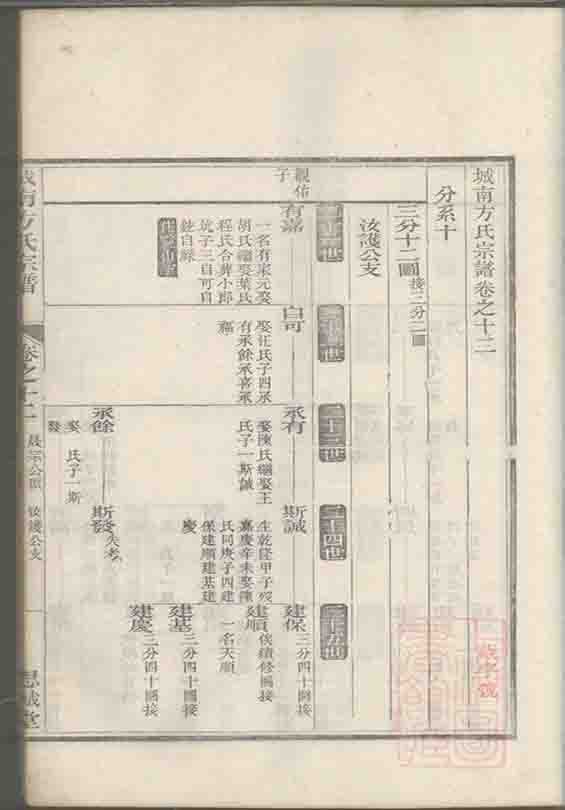 城南方氏宗譜卷之十二
分系十
三分十二圖接三分二圖
汝護公支
二十一世
二十二世
二十三世
二十四世
二十五世
觀佑子
有嘉
一名有家元娶
胡氏繼娶葉氏
程氏合葬小郎
坑子三自可自
銓自綵
自可
娶汪氏子四承
有承餘承喜承
福
承有
娶陳氏繼娶王
氏子一斯誠
斯誠
生乾隆甲子歿
嘉慶辛未娶陳
氏同庚子四建
保建順建基建
慶
建保
三分四十圖接
建順
俟續修圖接
一名天順
建基
三分四十圖接
建慶
三分四十圖接
承餘
娶 氏子一斯
發
斯發
失考
城南方氏宗譜
卷之十二
汝護公支
思誠堂